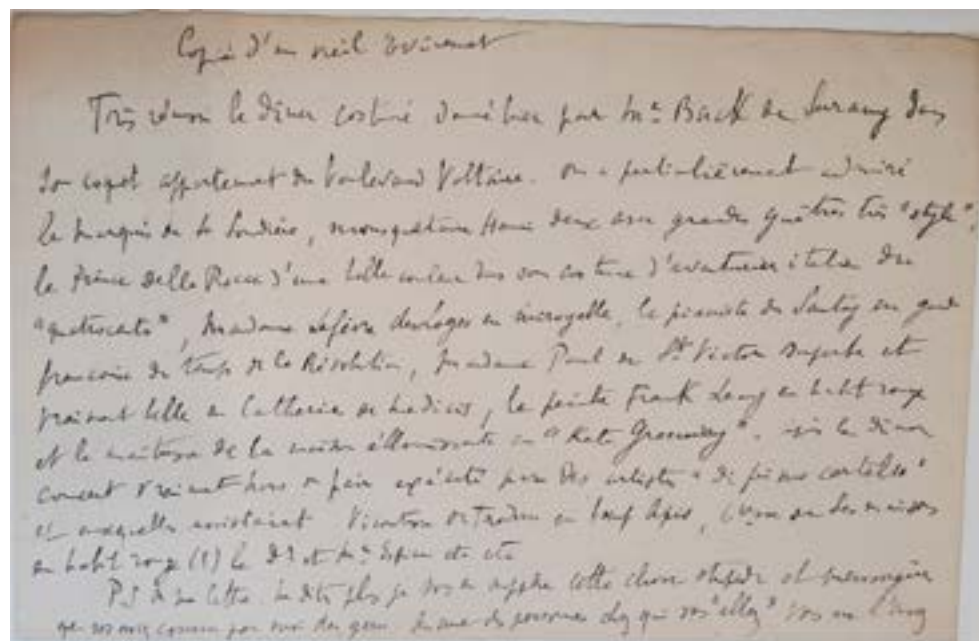 Copié d'un vieil
Très réussi le dîner costumé donné hier par Me Back de Surany dans
son coquet appartement du boulevard Voltaire. On a particulièrement admiré
le marquis de la, mousquetaire Henri deux avec grandes guêtres très "style",
le Prince della Rocca d'une belle couleur dans son costume d'aventurier italien du
"quatrocento", Madame Lefèvre en incroyable, le pianiste de Santoy en garde
française du temps de la Révolution, madame Paul de St Victor superbe et
vraiment belle en Catherine de Medicis, le peintre Frank Lamy en habit rouge
et la maîtresse de la maison éblouissante en "Kate Greenway". après le dîner
concert vraiment hors de pair exécuté par des artistes "di primo cartello"
et auxquelles assistaient Vicomtesse de en loup,
en habit rouge (1) le Dr et Me etc etc
PS à ma lettre. Ne dites plus je vous en supplie cette chose stupide et mensongère
que vous par moi des gens. des personnes chez qui vous "allez" vous